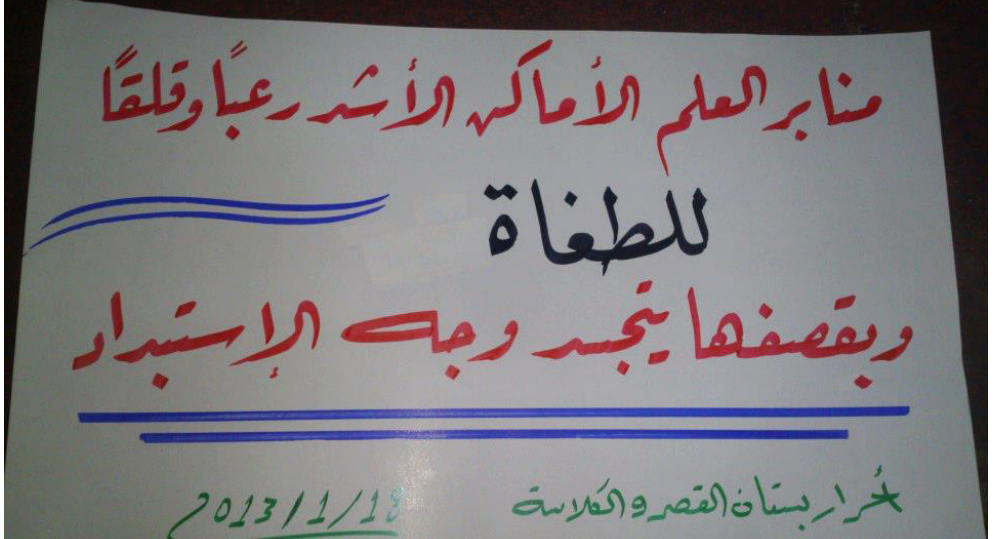 منابر العلم الأماكن الأشد رعبًا وقلقًا
للطغاة
وبقصفها يتجسد وجه الإستبداد
أحرار بستان القصر والكلاسة 2013/1/18